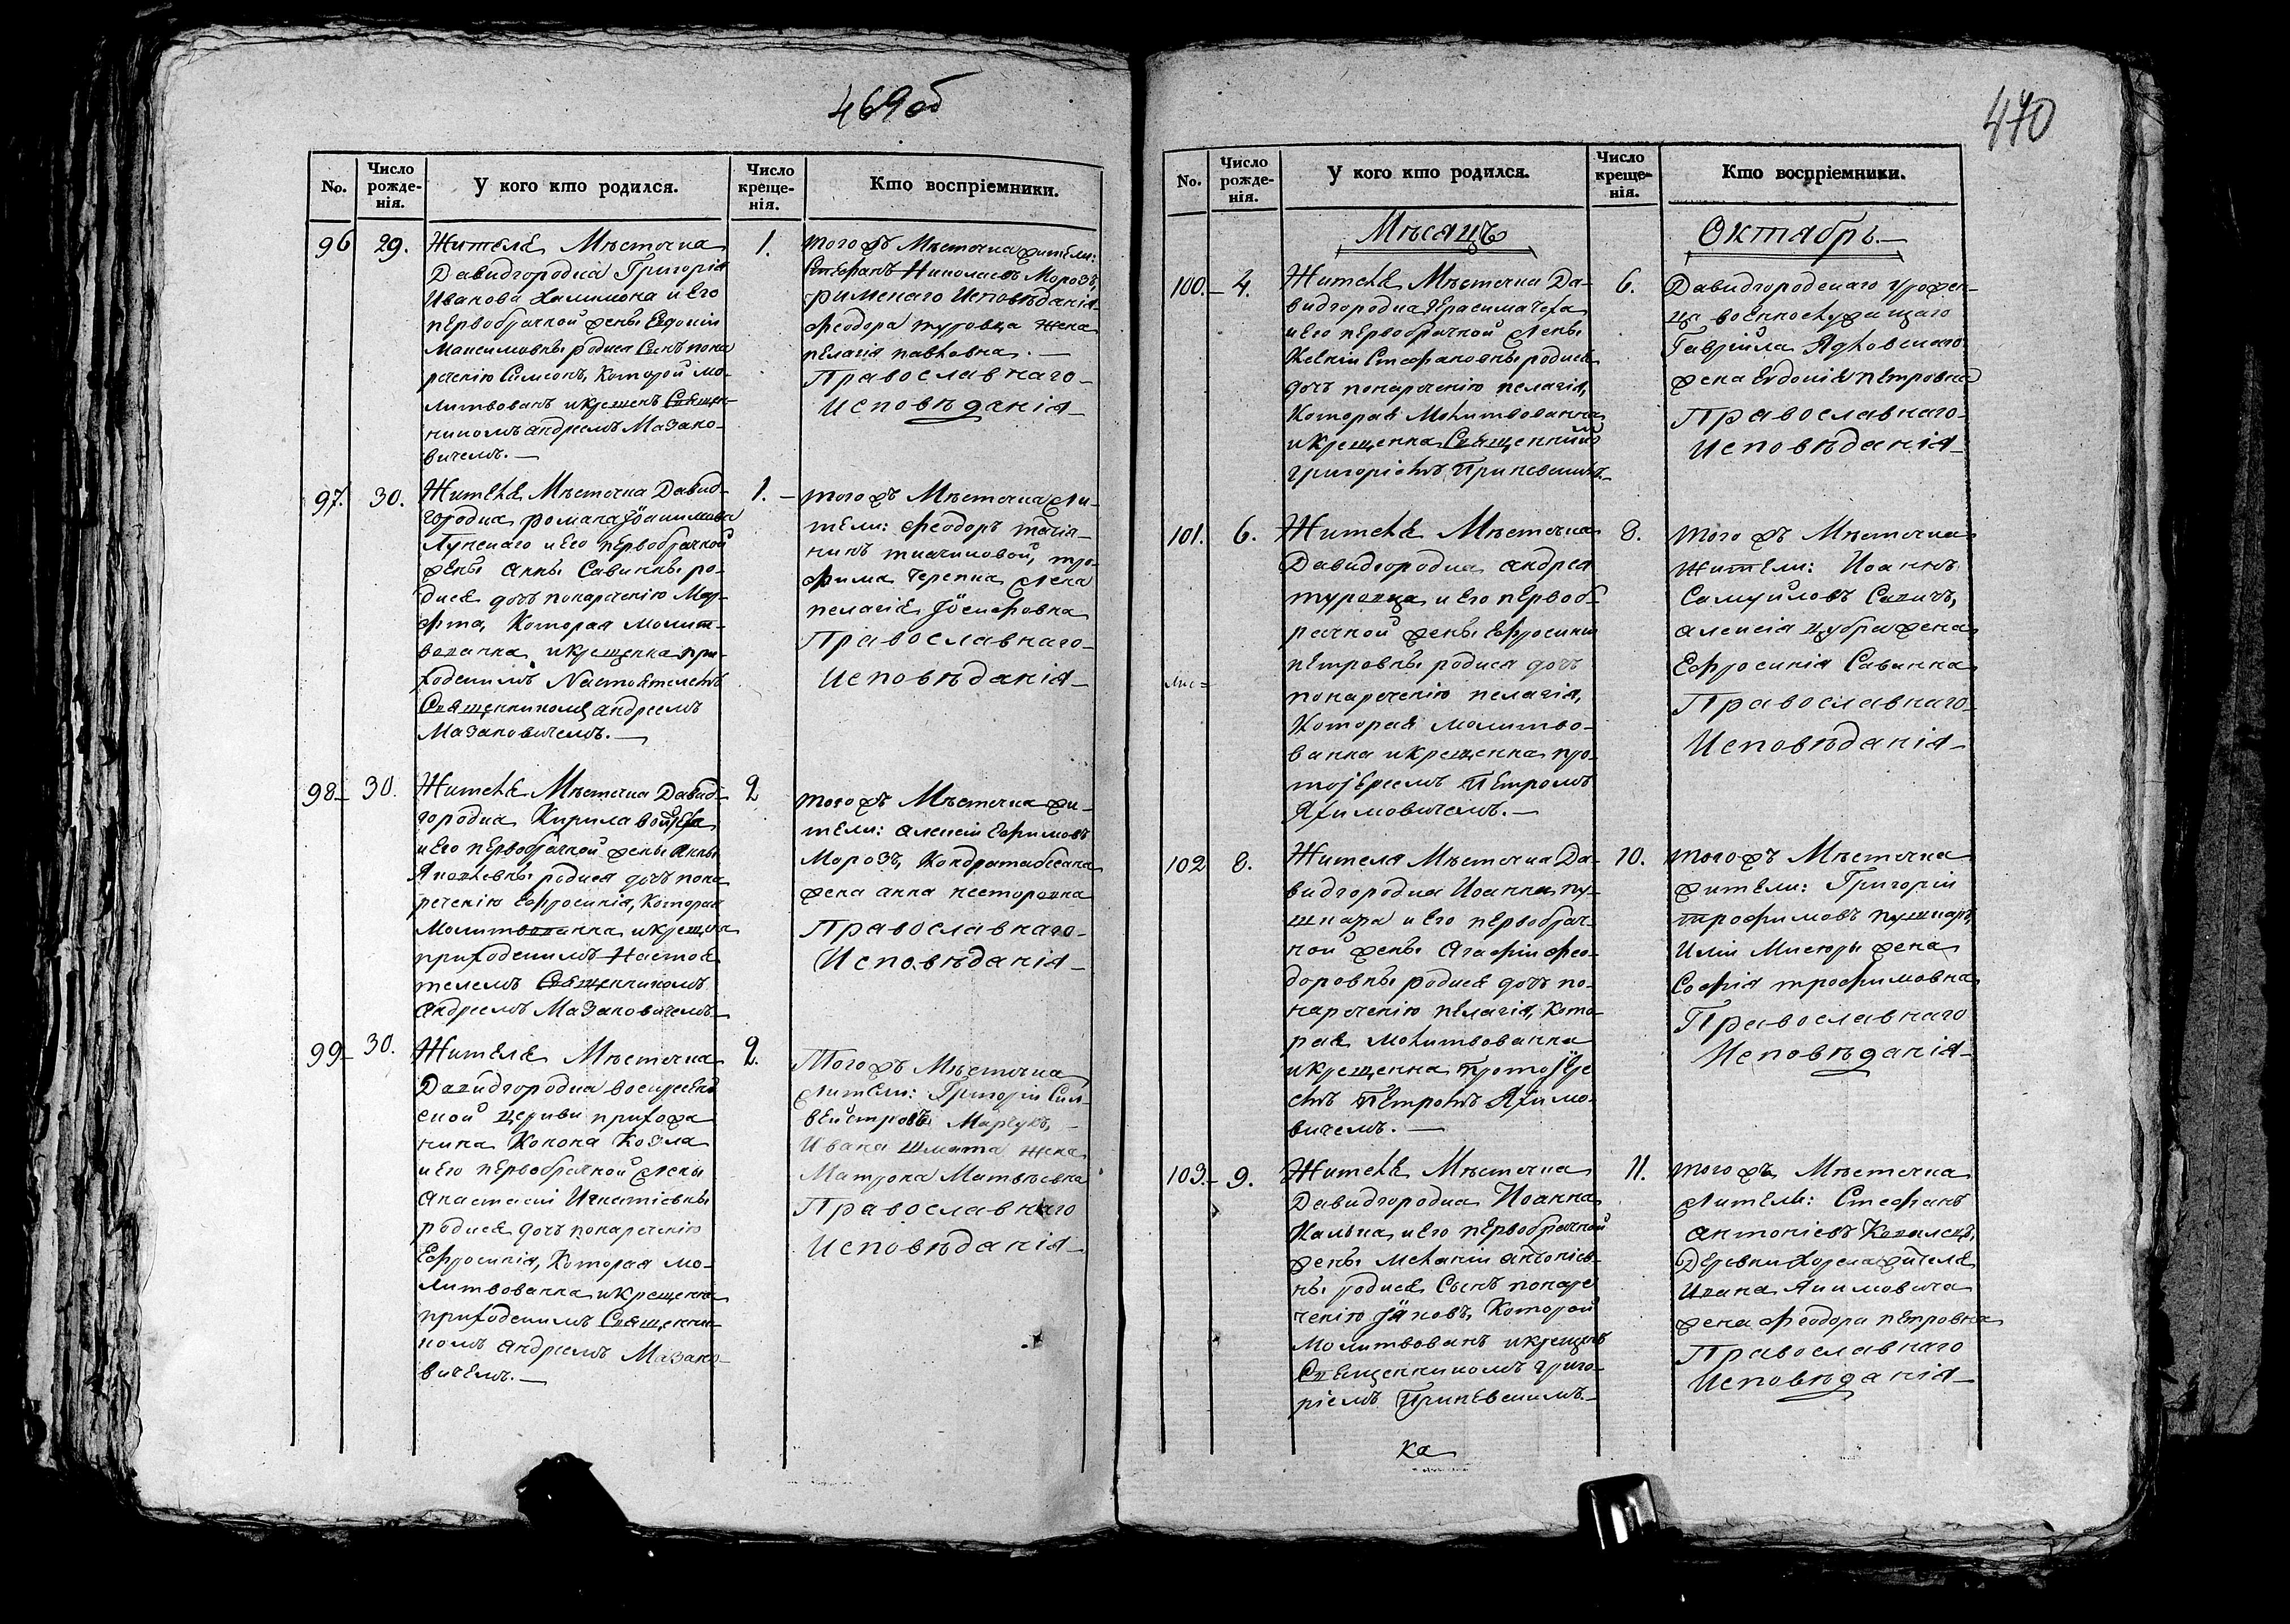 469 об
No.
Число рожде-нія.
У кого кто родился.
Число креще-нія.
Кто воспріемники.
96
29.
Жителя Мѣстечка
Давидгородка Григорія
Иванова Халимона и его
первобрачной жены Евдокіи
Максимовны родися Сынъ пона
реченію Симеонъ, Которой мо-
литвованъ икрещенъ Священ-
никомъ андреемъ Мазано-
вичемъ. —
1.
тогожъ Мѣстечка жители:
Стефанъ Николаевъ Морозъ,
римскаго Исповѣданія
феодора туровца жена
пелагія павловна. —
Православнаго
Исповѣданія
97.
30.
Жителя Мѣстечка Давид-
городка романа
Лунскаго и его первобрачной
жены анны Савинны ро-
дися дочъ понареченію Мар-
фта, Которая молит-
вованна икрещенна при-
ходскимъ Настоятелемъ
Священникомъ андреемъ
Мазановичемъ. —
1. —
тогожъ Мѣстечка жи-
тели: феодоръ
тро-
фима Черепка жена
пелагія Іосифовна
Православнаго
Исповѣданія
98
30.
Жителя Мѣстечка Давид-
городка Кирила
и его первобрачной жены анны
Яковлевны родися дочъ пона
реченію Ефросинія, Которая
Молитвованна икрещена
приходскимъ Настоя
телемъ Священникомъ
андреемъ Мазановичемъ
2
тогожъ Мѣстечка жи-
тели: алексій Ефимовъ
Морозъ, Кондрата
жена анна несторовна
Православнаго
Исповѣданія
99
30.
Жителя Мѣстечка
Давидгородка воскресен
ской церкви прихожа
нина Конона Козла
и его первобрачной жены
анастасіи Игнатіевны
родися дочъ понареченію
Ефросинія, Которая мо-
литвованна икрещенна
приходскимъ Священни-
комъ андреемъ Мазано-
вичемъ. —
2.
Тогожъ Мѣстечка
жители: Григорій Сил-
вейстровъ Марчукъ,
Ивана Шмата жена
Матрона Матвѣевна
Православнаго
Исповѣданія
470
No.
Число рожде-нія.
У кого кто родился.
Число креще-нія.
Кто воспріемники.
Мѣсяцъ
Октябрь. —
100.
4.
Жителя Мѣстечка Да-
видгородка Герасима Чеха
и его первобрачной жены
Ксеніи Стефановны родися
дочъ понареченію пелагія,
Которая Молитвованна
икрещенна Священником
григоріемъ Припевскимъ
6.
Давидгородскаго урожен-
ца военнослужащаго
Гавріила Ядковскаго
жена Евдокія петровна
Православнаго
Исповѣданія
101.
6.
Жителя Мѣстечка
Давидгородка андрея
туровца и его первоб-
рачной жены Ефросиніи
петровны родися дочъ
понареченію пелагія,
Которая молитво-
ванна икрещенна про-
тоіереемъ Петромъ
Яхимовичемъ. —
8.
того жъ Мѣстечка
жители: Иоаннъ
Самуиловъ Савичъ,
алексія Цубра жена
Ефросинія Савинна
Православнаго
Исповѣданія
102
8.
Жителя Мѣстечка Да-
видгородка Иоанна пу-
шкара и его первобрач-
ной жены агафіи фео-
доровны родися дочъ по-
нареченію пелагія, Кото-
рая Молитвованна
икрещенна протоіере
емъ Петромъ Яхимо-
вичемъ. —
10.
тогожъ Мѣстечка
жители: Григорій
трофимовъ пушкаръ,
Иліи Мисюры жена
Софія трофимовна
Православнаго
Исповѣданія
103.
9.
Жителя Мѣстечка
Давидгородка Иоанна
Калька и его первобрачной
жены Меланіи антоніев-
ны родися Сынъ понаре
ченію Іяковъ, Которой
Молитвованъ икрещенъ
Священникомъ григо-
ріемъ Припевскимъ
11.
тогожъ Мѣстечка
жители: Стефанъ
антоніевъ Ковалецъ,
деревни Хорска жителя
Ивана Якимовича
жена феодора петровна
Православнаго
Исповѣданія
ка